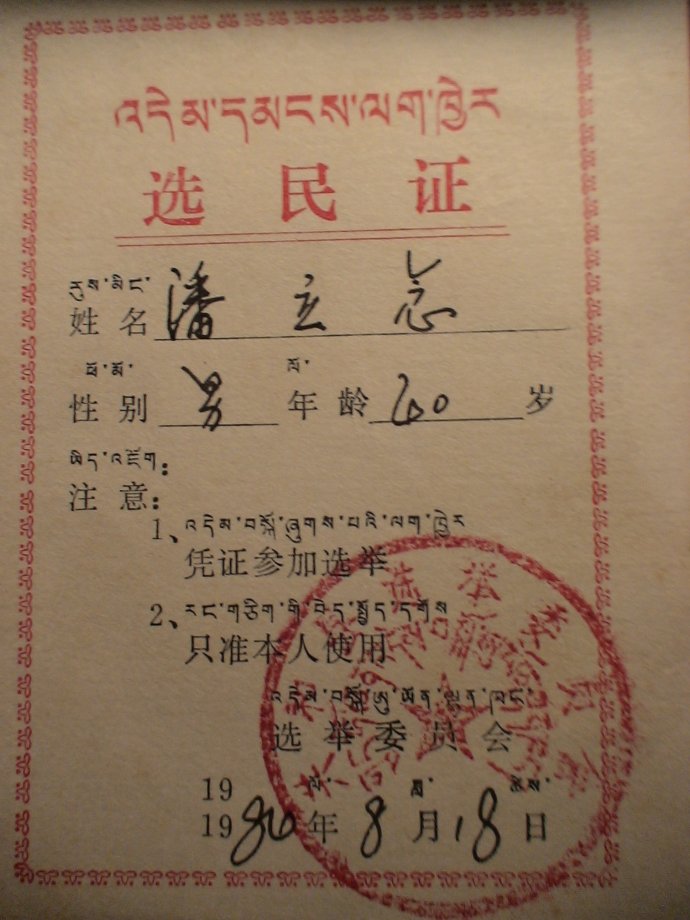 འདེམ་དམངས་ལག་ཁྱེར
选民证
རུས་མིང་
姓名 潘立志
ཕོ་མོ་ ལོ་
性别 男 年龄 60 岁
ཡིད་འཇོག:
注意:
1、འདེམ་བསྐོ་ཞུགས་པའི་ལག་ཁྱེར
凭证参加选举
2、རང་གཅིག་གི་བེད་སྤྱོད་དགོས
只准本人使用
འདེམ་བསྐོ་ཨུ་ཡོན་ལྷན་ཁང་
选举委员会
19 ལོ་ ཟླ་ ཚེས་
1980年8月18日
选举委员会